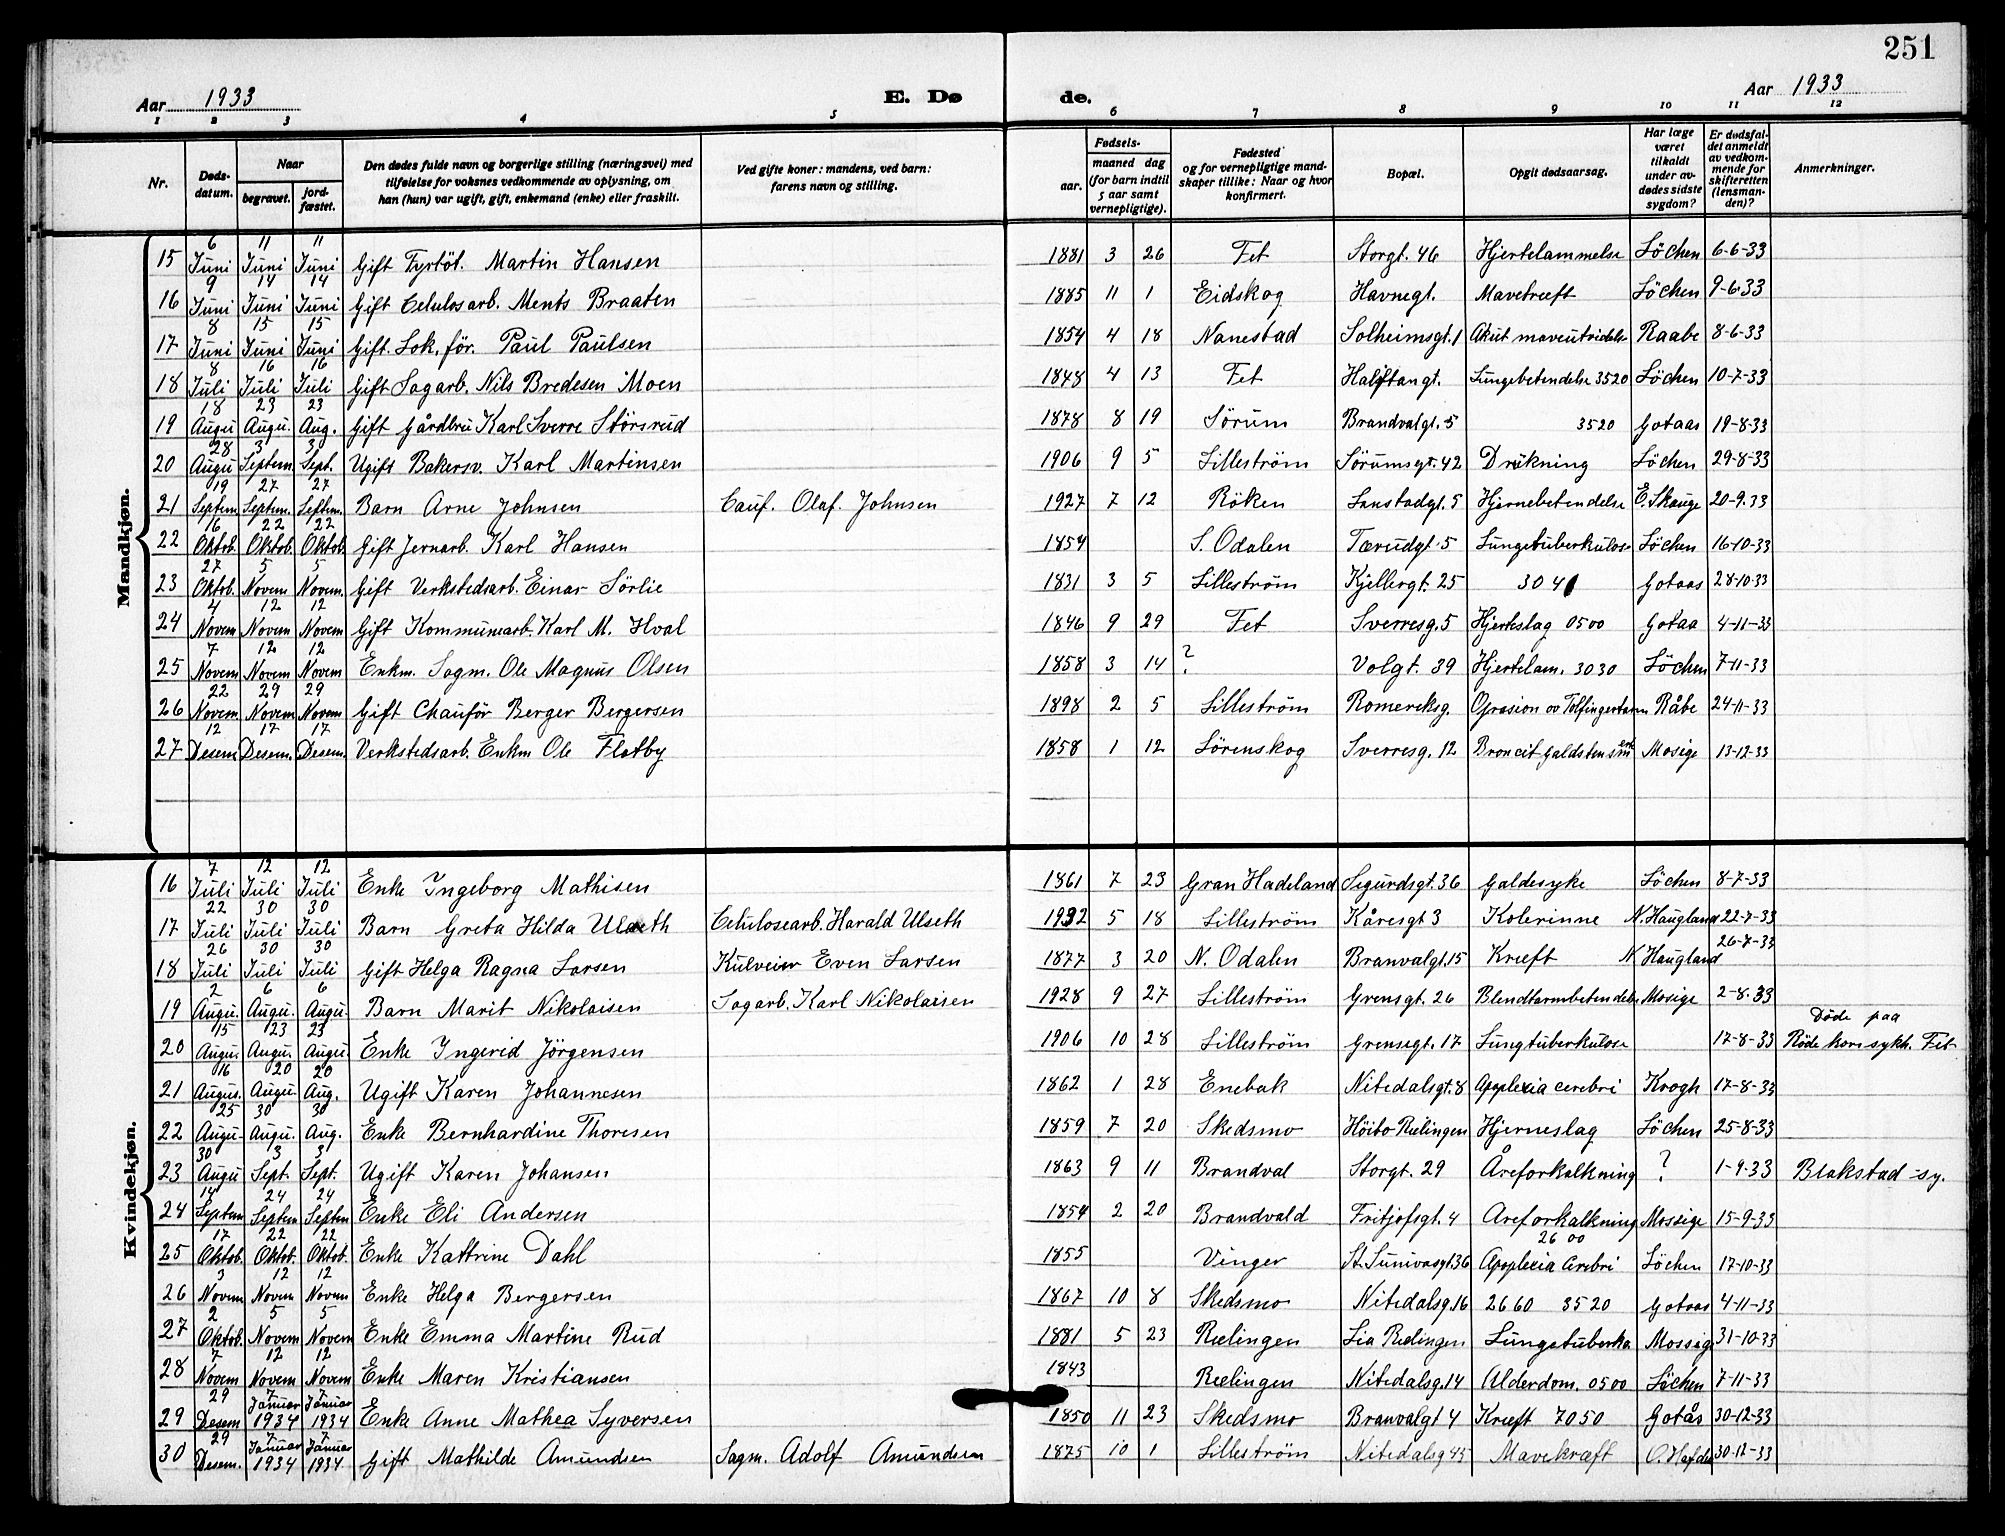 251
Aar 1933 E. Dø de. Aar 1933
1 2 3 4 5 6 7 8 9 10 11 12
Nr. Døds-datum. Naar begravet. jord-fæstet. Den dødes fulde navn og borgerlige stilling (næringsvei) med tilføielse for voksnes vedkommende av oplysning, om han (hun) var ugift, gift, enkemand (enke) eller fraskilt. Ved gifte koner: mandens, ved barn: farens navn og stilling. Fødsels- aar. maaned dag (for barn indtil 5 aar samt vernepligtige). Fødested og for vernepligtige mand-skaper tillike: Naar og hvor konfirmert. Bopæl. Opgit dødsaarsag. Har læge været tilkaldt under av-dødes sidste sygdom? Er dødsfal-det anmeldt av vedkom-mende for skifteretten (lensman-den)? Anmerkninger.
Mandkjøn.
15 6 Juni 11 Juni 11 Juni Gift Fyrböt. Martin Hansen 1881 3 26 Fet Storgt. 46 Hjertelammelse Löchen 6-6-33
16 9 Juni 14 Juni 14 Juni Gift Celulosarb. Ments Braaten 1885 11 1 Eidskog Havnegt. Mavekræft Löchen 9-6-33
17 8 Juni 15 Juni 15 Juni Gift. Lok. för. Paul Paulsen 1854 4 18 Nanestad Solheimsgt. 1 Akut maveutvidelse Raabe 8-6-33
18 8 Juli 16 Juli 16 Juli Gift Sagarb. Nils Bredesen Moen 1848 4 13 Fet Halftangt. Lungebetendelse 3520 Löchen 10-7-33
19 18 Augu 23 Augu. 23 Aug. Gift Gårdbru Karl Sverre Störsrud 1878 8 19 Sörum Brandvalgt. 5 3520 Gotaas 19-8-33
20 28 Augu 3 Septem. 3 Sept. Ugift Bakersv. Karl Martinsen 1906 9 5 Lilleström Sörumsgt. 42 Drukning Löchen 29-8-33
21 19 Septem 27 Septem. 27 Septem. Barn Arne Johnsen Cauf. Olaf. Johnsen 1927 7 12 Röken Lanstadgt. 5 Hjernebetendelse E. Skauge 20-9.33
22 16 Oktob. 22 Oktob. 22 Oktob. Gift Jernarb. Karl Hansen 1854 S. Odalen Tærudgt. 5 Lungetuberkulose Löchen 16-10-33
23 27 Oktob. 5 Novem 5 Novem. Gift Verkstedsarb. Einar Sörlie 1831 3 5 Lilleström Kjellergt. 25 3041 Gotaas 28-10-33
24 4 Novem 12 Novem 12 Novem Gift Kommunearb. Karl M. Hval 1846 9 29 Fet Sverresg. 5 Hjerteslag 0500 Gotaa 4-11-33
25 7 Novem 12 Novem 12 Novem Enkm. Sagm. Ole Magnus Olsen 1858 3 14 ? Volgt. 39 Hjertelam. 3030 Löchen 7-11-33
26 22 Novem 29 Novem 29 Novem Gift Chauför Berger Bergersen 1898 2 5 Lilleström Romeriksg. Oprasion ov Tolfingertarm Råbe 24-11-33
27 12 Desem 17 Desem. 17 Desem. Verkstedsarb. Enkm Ole Flatby 1858 1 12 Lörenskog Sverresg. 12 Broncit Galdsten Mosige 13-12-33
Kvindekjøn.
16 7 Juli 12 Juli 12 Juli Enke Ingeborg Mathisen 1861 7 23 Gran Hadeland Sigurdsgt. 36 Galdesyke Löchen 8-7-33
17 22 Juli 30 Juli 30 Juli Barn Greta Hilda Ulseth Celulosearb. Harald Ulseth 1932 5 18 Lilleström Kåresgt 3 Kolerinne N. Haugland 22-7-33
18 26 Juli 30 Juli 30 Juli Gift Helga Ragna Larsen Kulveier Even Larsen 1877 3 20 N. Odalen Branvalgt. 15 Kræft N Haugland 26-7-33
19 2 Augu. 6 Augu. 6 Augu. Barn Marit Nikolaisen Sagarb. Karl Nikolaisen 1928 9 27 Lilleström Grensgt. 26 Blendtarmbetendelse Mosige 2-8-33
20 15 Augus. 23 Augu. 23 Augu Enke Ingerid Jörgensen 1906 10 28 Lilleström Grensegt. 17 Lungtuberkulose 17-8-33 Döde paa Röde kors sykh. Fet
21 16 Augus. 20 Augu. 20 Aug. Ugift Karen Johannesen 1862 1 28 Enebak Nitedalsgt. 8 Apoplexia cerebri Krogh 17-8-33
22 25 Augu. 30 Augu. 30 Aug. Enke Bernhardine Thoresen 1859 7 20 Skedsmo Höibo Rælingen Hjerneslag Löchen 25-8-33
23 30 Augu 3 Sept. 3 Sept. Ugift Karen Johansen 1863 9 11 Brandval Storgt. 29 Åreforkalkning ? 1-9-33 Blakstad-sy.
24 14 Septem 24 Septem 24 Septem Enke Eli Andersen 1854 2 20 Brandvald Fritjofsgt. 4 Areforkalkning Mossige 15-9-33
25 17 Oktob. 22 Oktob. 22 Oktob. Enke Kattrine Dahl 1855 Vinger St. Sunivasgt. 36 2600 Apoplexia Cerebri Löchen 17-10-33
26 3 Novem 12 Novem 12 Novem Enke Helga Bergersen 1867 10 8 Skedsmo Nitedalsg. 16 2660 3520 Gotaas 4-11-33
27 2 Oktob. 5 Novem 5 Novem Enke Emma Martine Rud 1881 5 23 Rælingen Lia Rælingen Lungetuberku. Mossige 31-10-33
28 7 Novem 12 Novem 12 Novem Enke Maren Kristiansen 1843 Rælingen Nitedalsg. 14 Alderdom. 0500 Löchen 7-11-33
29 29 Desem 7 Januar 1934 7 Januar 1934 Enke Anne Mathea Syversen 1850 11 23 Skedsmo Branvalgt 4 Kræft 7050 Gotås 30-12-33
30 29 Desem. 7 Januar 1934 7 Januar 1934 Gift Mathilde Amundsen Sagm. Adolf Amundsen 1875 10 1 Lilleström Nitedalsg 45 Mavekræft 30-12-33